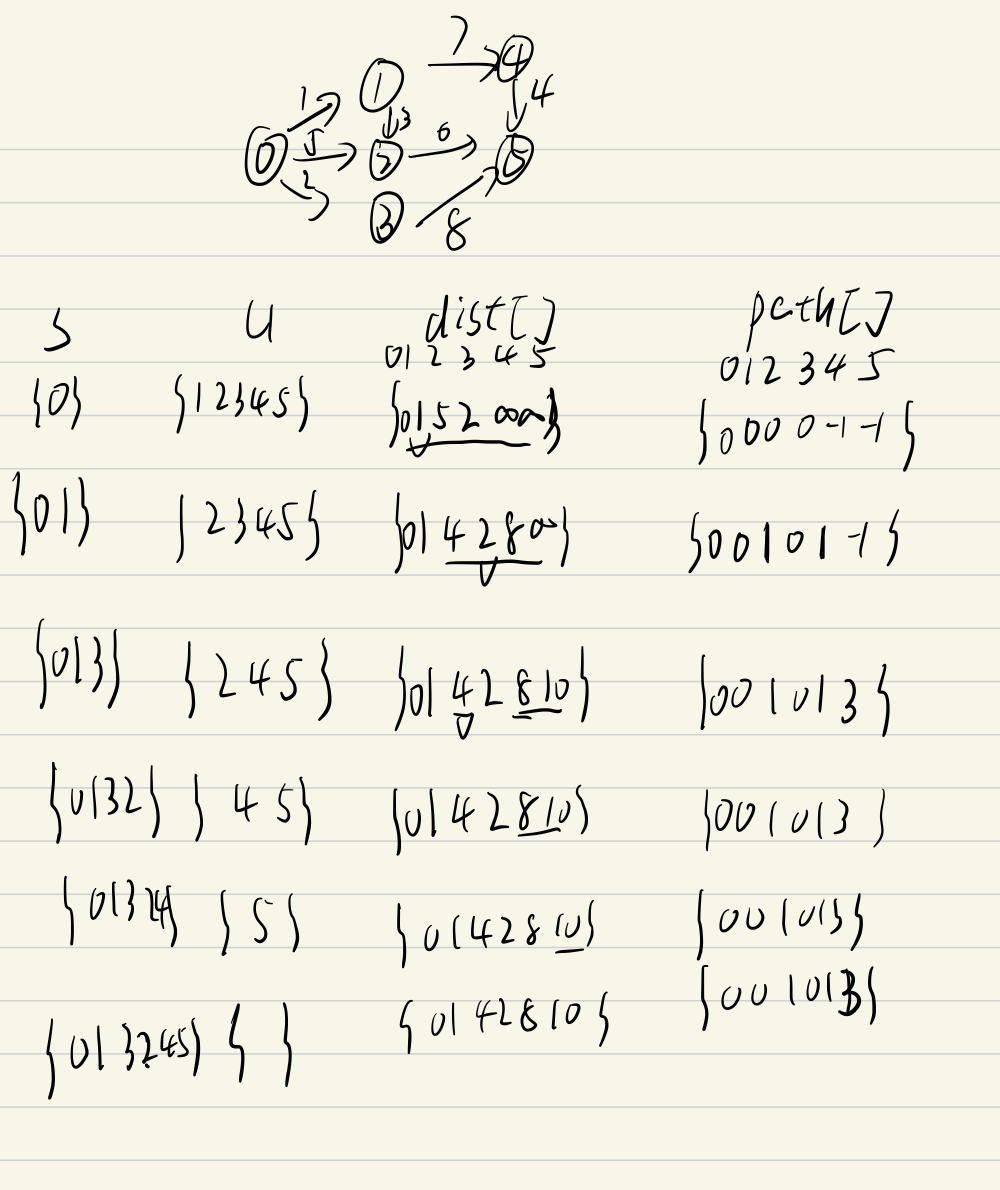 7 4
1 1 4
0 5 3 2 6 5
2 3 8
S U dist[] path[]
0 1 2 3 4 5 0 1 2 3 4 5
{0} {1 2 3 4 5} {0 1 5 2 ∞ ∞} {0 0 0 0 -1 -1}
{0 1} {2 3 4 5} {0 1 4 2 8 ∞} {0 0 1 0 1 -1}
{0 1 3} {2 4 5} {0 1 4 2 8 10} {0 0 1 0 1 3}
{0 1 3 2} {4 5} {0 1 4 2 8 10} {0 0 1 0 1 3}
{0 1 3 2 4} {5} {0 1 4 2 8 10} {0 0 1 0 1 3}
{0 1 3 2 4 5} { } {0 1 4 2 8 10} {0 0 1 0 1 3}